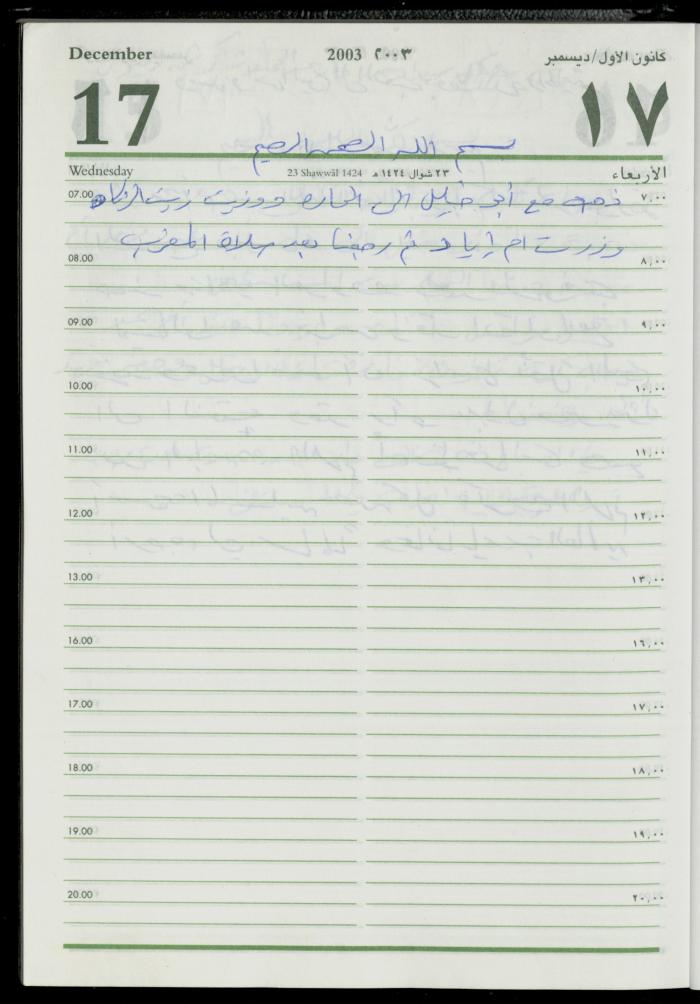 December 2003 ٢٠٠٣ كانون الأول/ديسمبر
17 ١٧
بسم الله الرحمن الرحيم
Wednesday 23 Shawwāl 1424 ٢٣ شوال ١٤٢٤ هـ الأربعاء
07.00 ذهبت مع أبو خليل الى الحارة ووزعت زيت الزكاة ٧,٠٠
وزرت ام إياد ثم رجعنا بعد صلاة المغرب
08.00 ٨,٠٠
09.00 ٩,٠٠
10.00 ١٠,٠٠
11.00 ١١,٠٠
12.00 ١٢,٠٠
13.00 ١٣,٠٠
16.00 ١٦,٠٠
17.00 ١٧,٠٠
18.00 ١٨,٠٠
19.00 ١٩,٠٠
20.00 ٢٠,٠٠